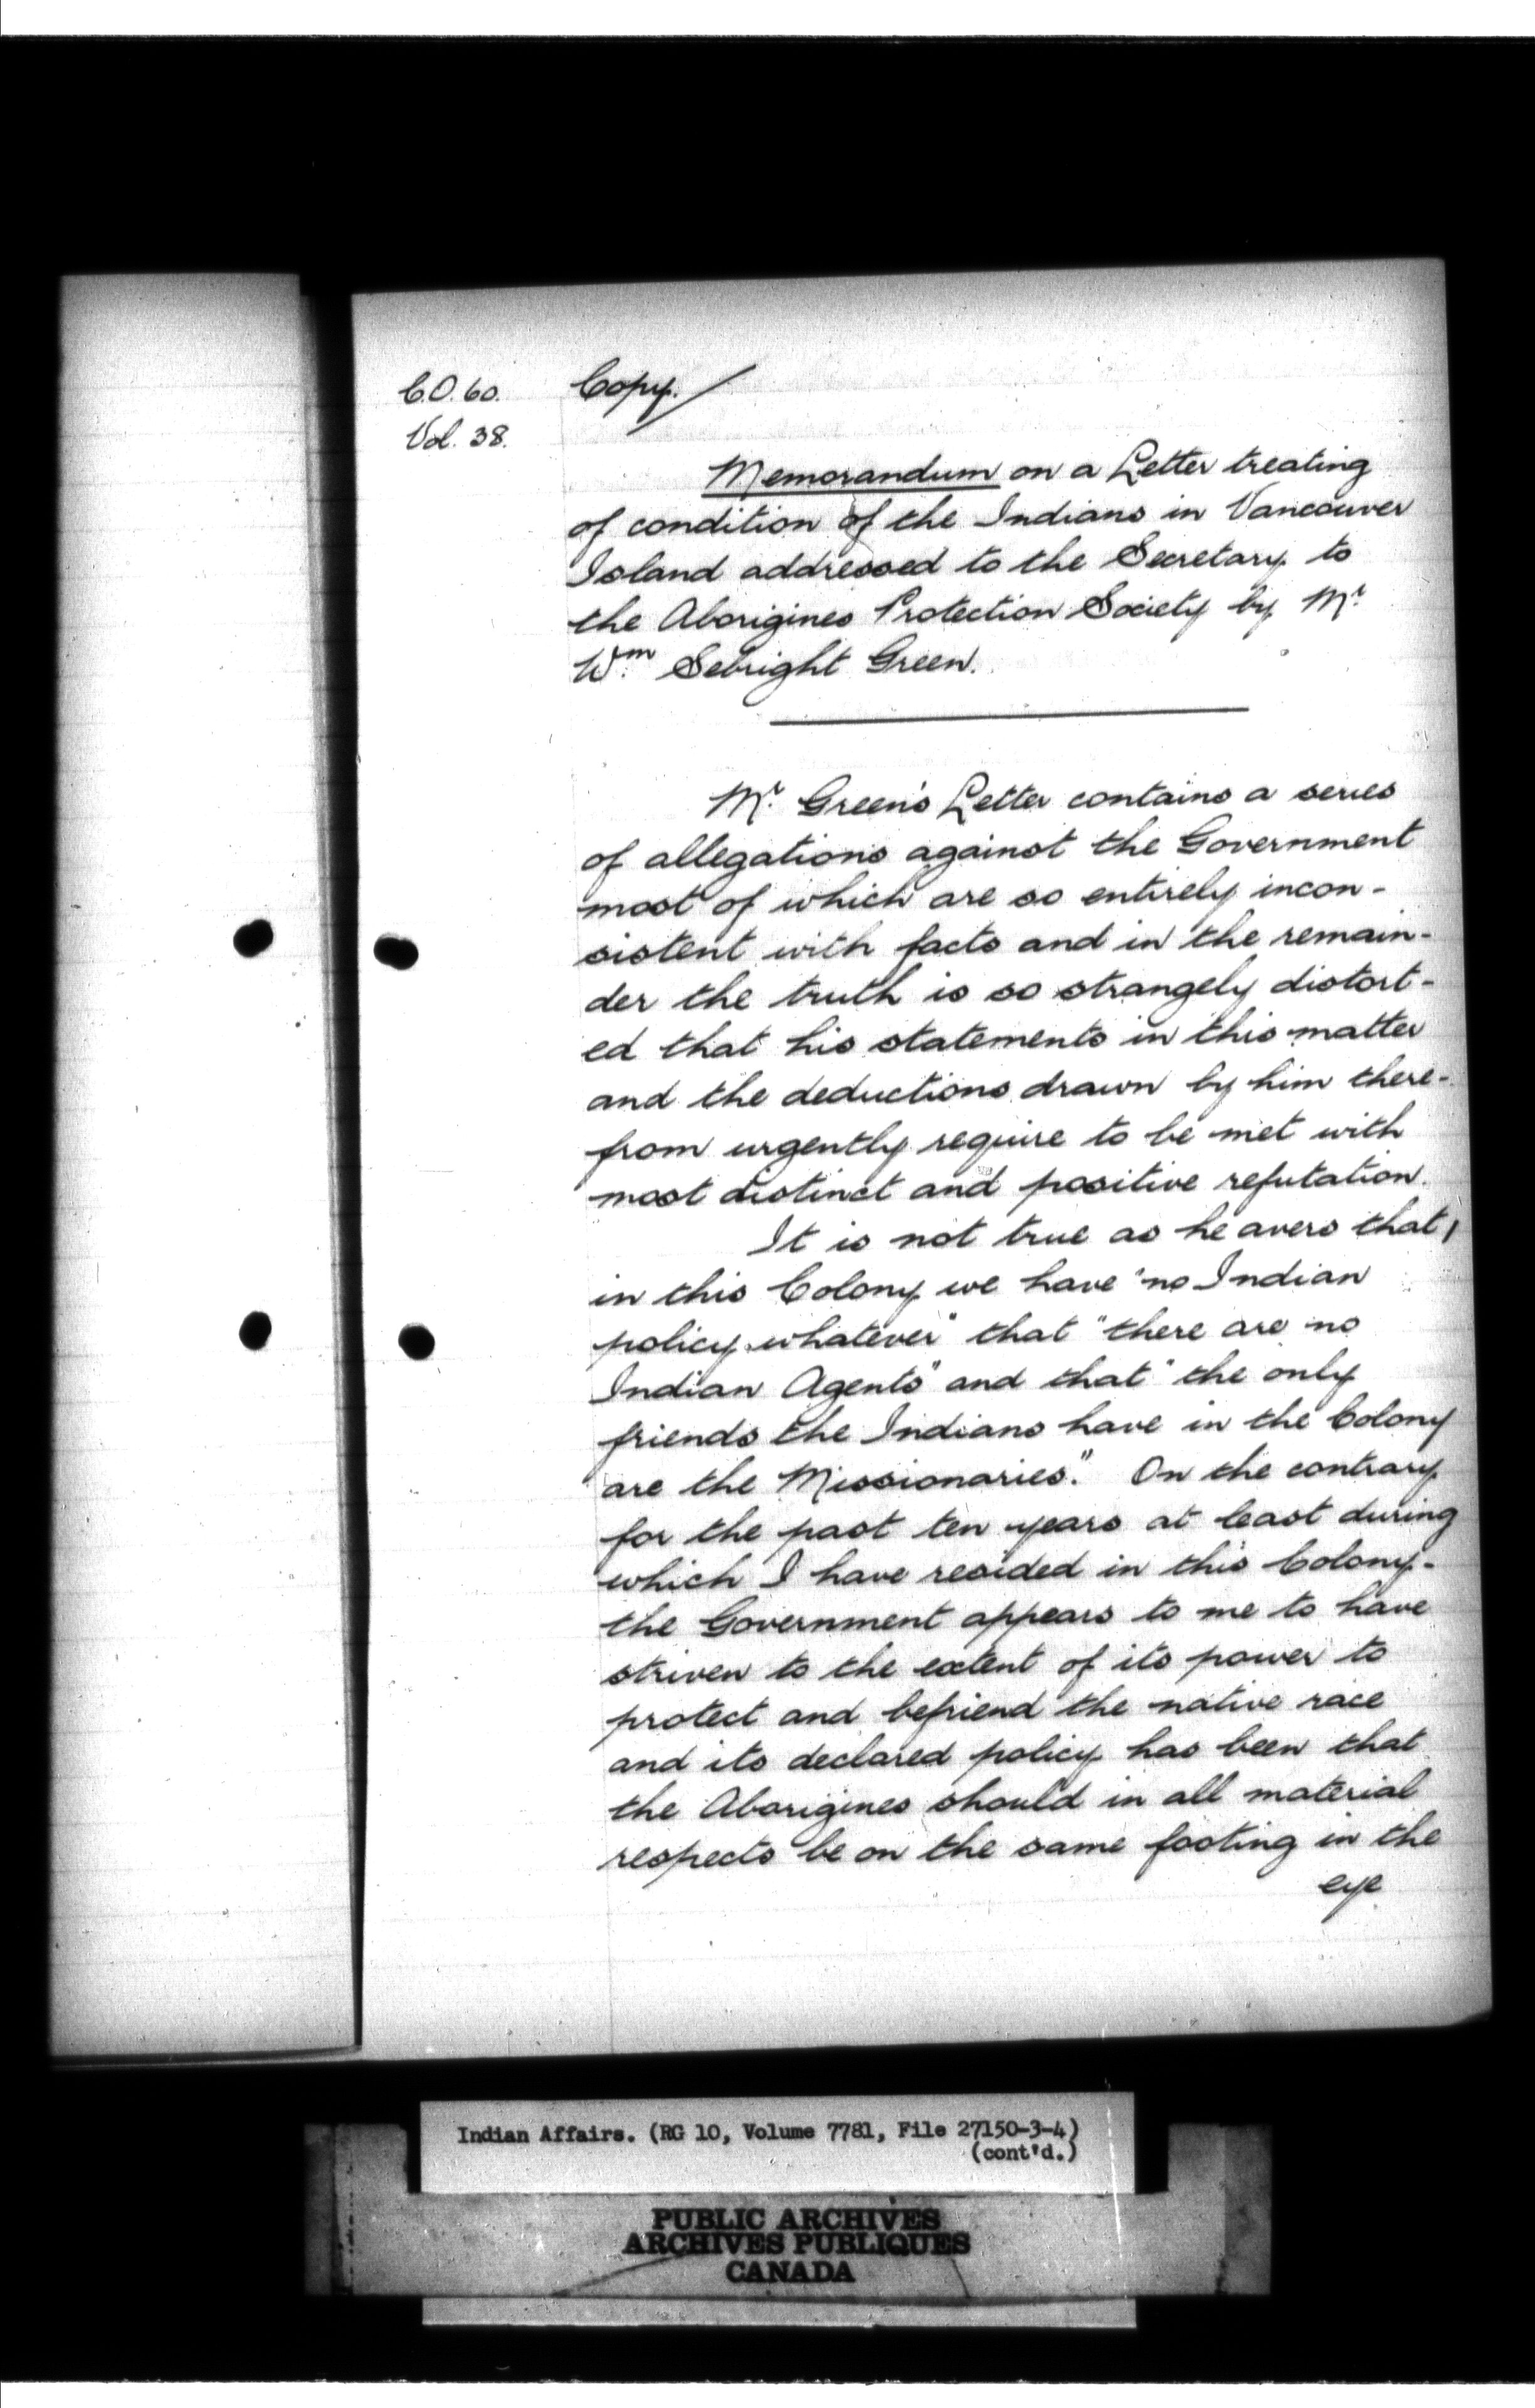 C.O. 60.
Vol. 38.
Copy./
Memorandum on a Letter treating
of condition of the Indians in Vancouver
Island addressed to the Secretary to
the Aborigines Protection Society by Mr.
Wm. Sebright Green.
Mr. Green's Letter contains a series
of allegations against the Government
most of which are so entirely incon-
sistent with facts and in the remain-
der the truth is so strangely distort-
ed that his statements in this matter
and the deductions drawn by him there-
from urgently require to be met with
most distinct and positive refutation.
It is not true as he avers that,
in this Colony we have "no Indian
policy whatever" that "there are no
Indian Agents" and that "the only
friends the Indians have in the Colony
are the Missionaries." On the contrary
for the past ten years at least during
which I have resided in this Colony-
the Government appears to me to have
striven to the extent of its power to
protect and befriend the native race
and its declared policy has been that
the Aborigines should in all material
respects be on the same footing in the
eye
Indian Affairs. (RG 10, Volume 7781, File 27150-3-4)
(cont'd.)
PUBLIC ARCHIVES
ARCHIVES PUBLIQUES
CANADA